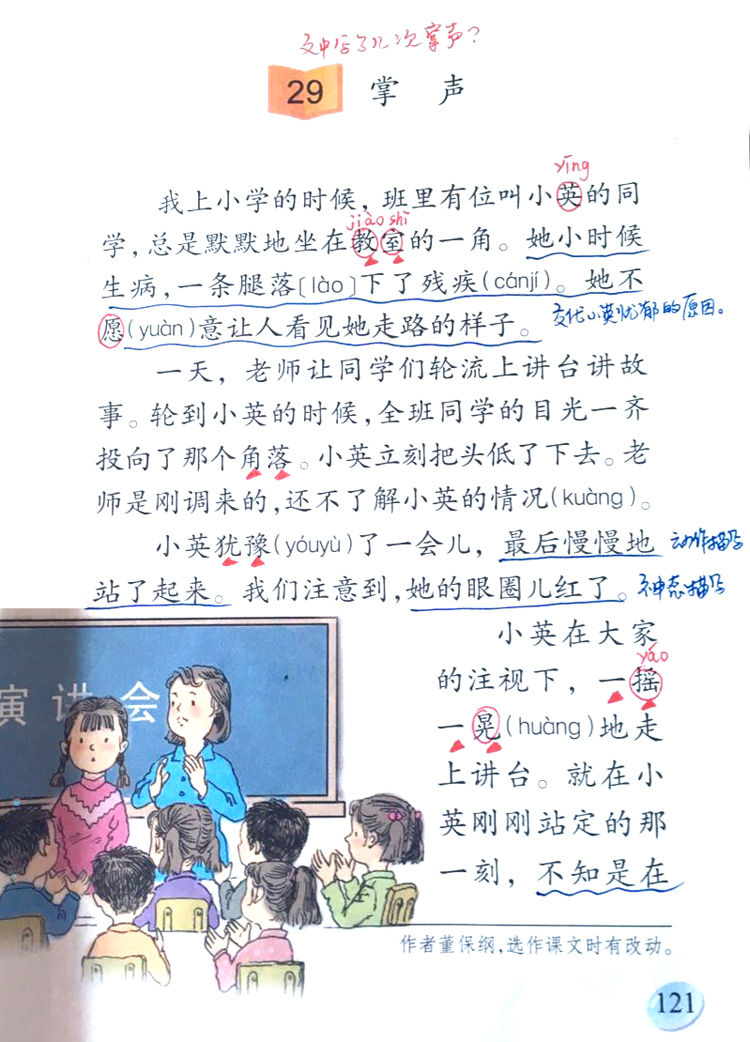 文中写了几次掌声？
29 掌声
yīng
我上小学的时候，班里有位叫小英的同
jiào shì
学，总是默默地坐在教室的一角。她小时候
生病，一条腿落〔lào〕下了残疾(cánjí)。她不
愿(yuàn)意让人看见她走路的样子。
交代小英忧郁的原因。
一天，老师让同学们轮流上讲台讲故
事。轮到小英的时候，全班同学的目光一齐
投向了那个角落。小英立刻把头低了下去。老
师是刚调来的，还不了解小英的情况(kuàng)。
小英犹豫(yóuyù)了一会儿，最后慢慢地
动作描写
站了起来。我们注意到，她的眼圈儿红了。
神态描写
小英在大家
yáo
的注视下，一摇
一晃(huàng)地走
上讲台。就在小
英刚刚站定的那
一刻，不知是在
演讲会
作者董保纲，选作课文时有改动。
121